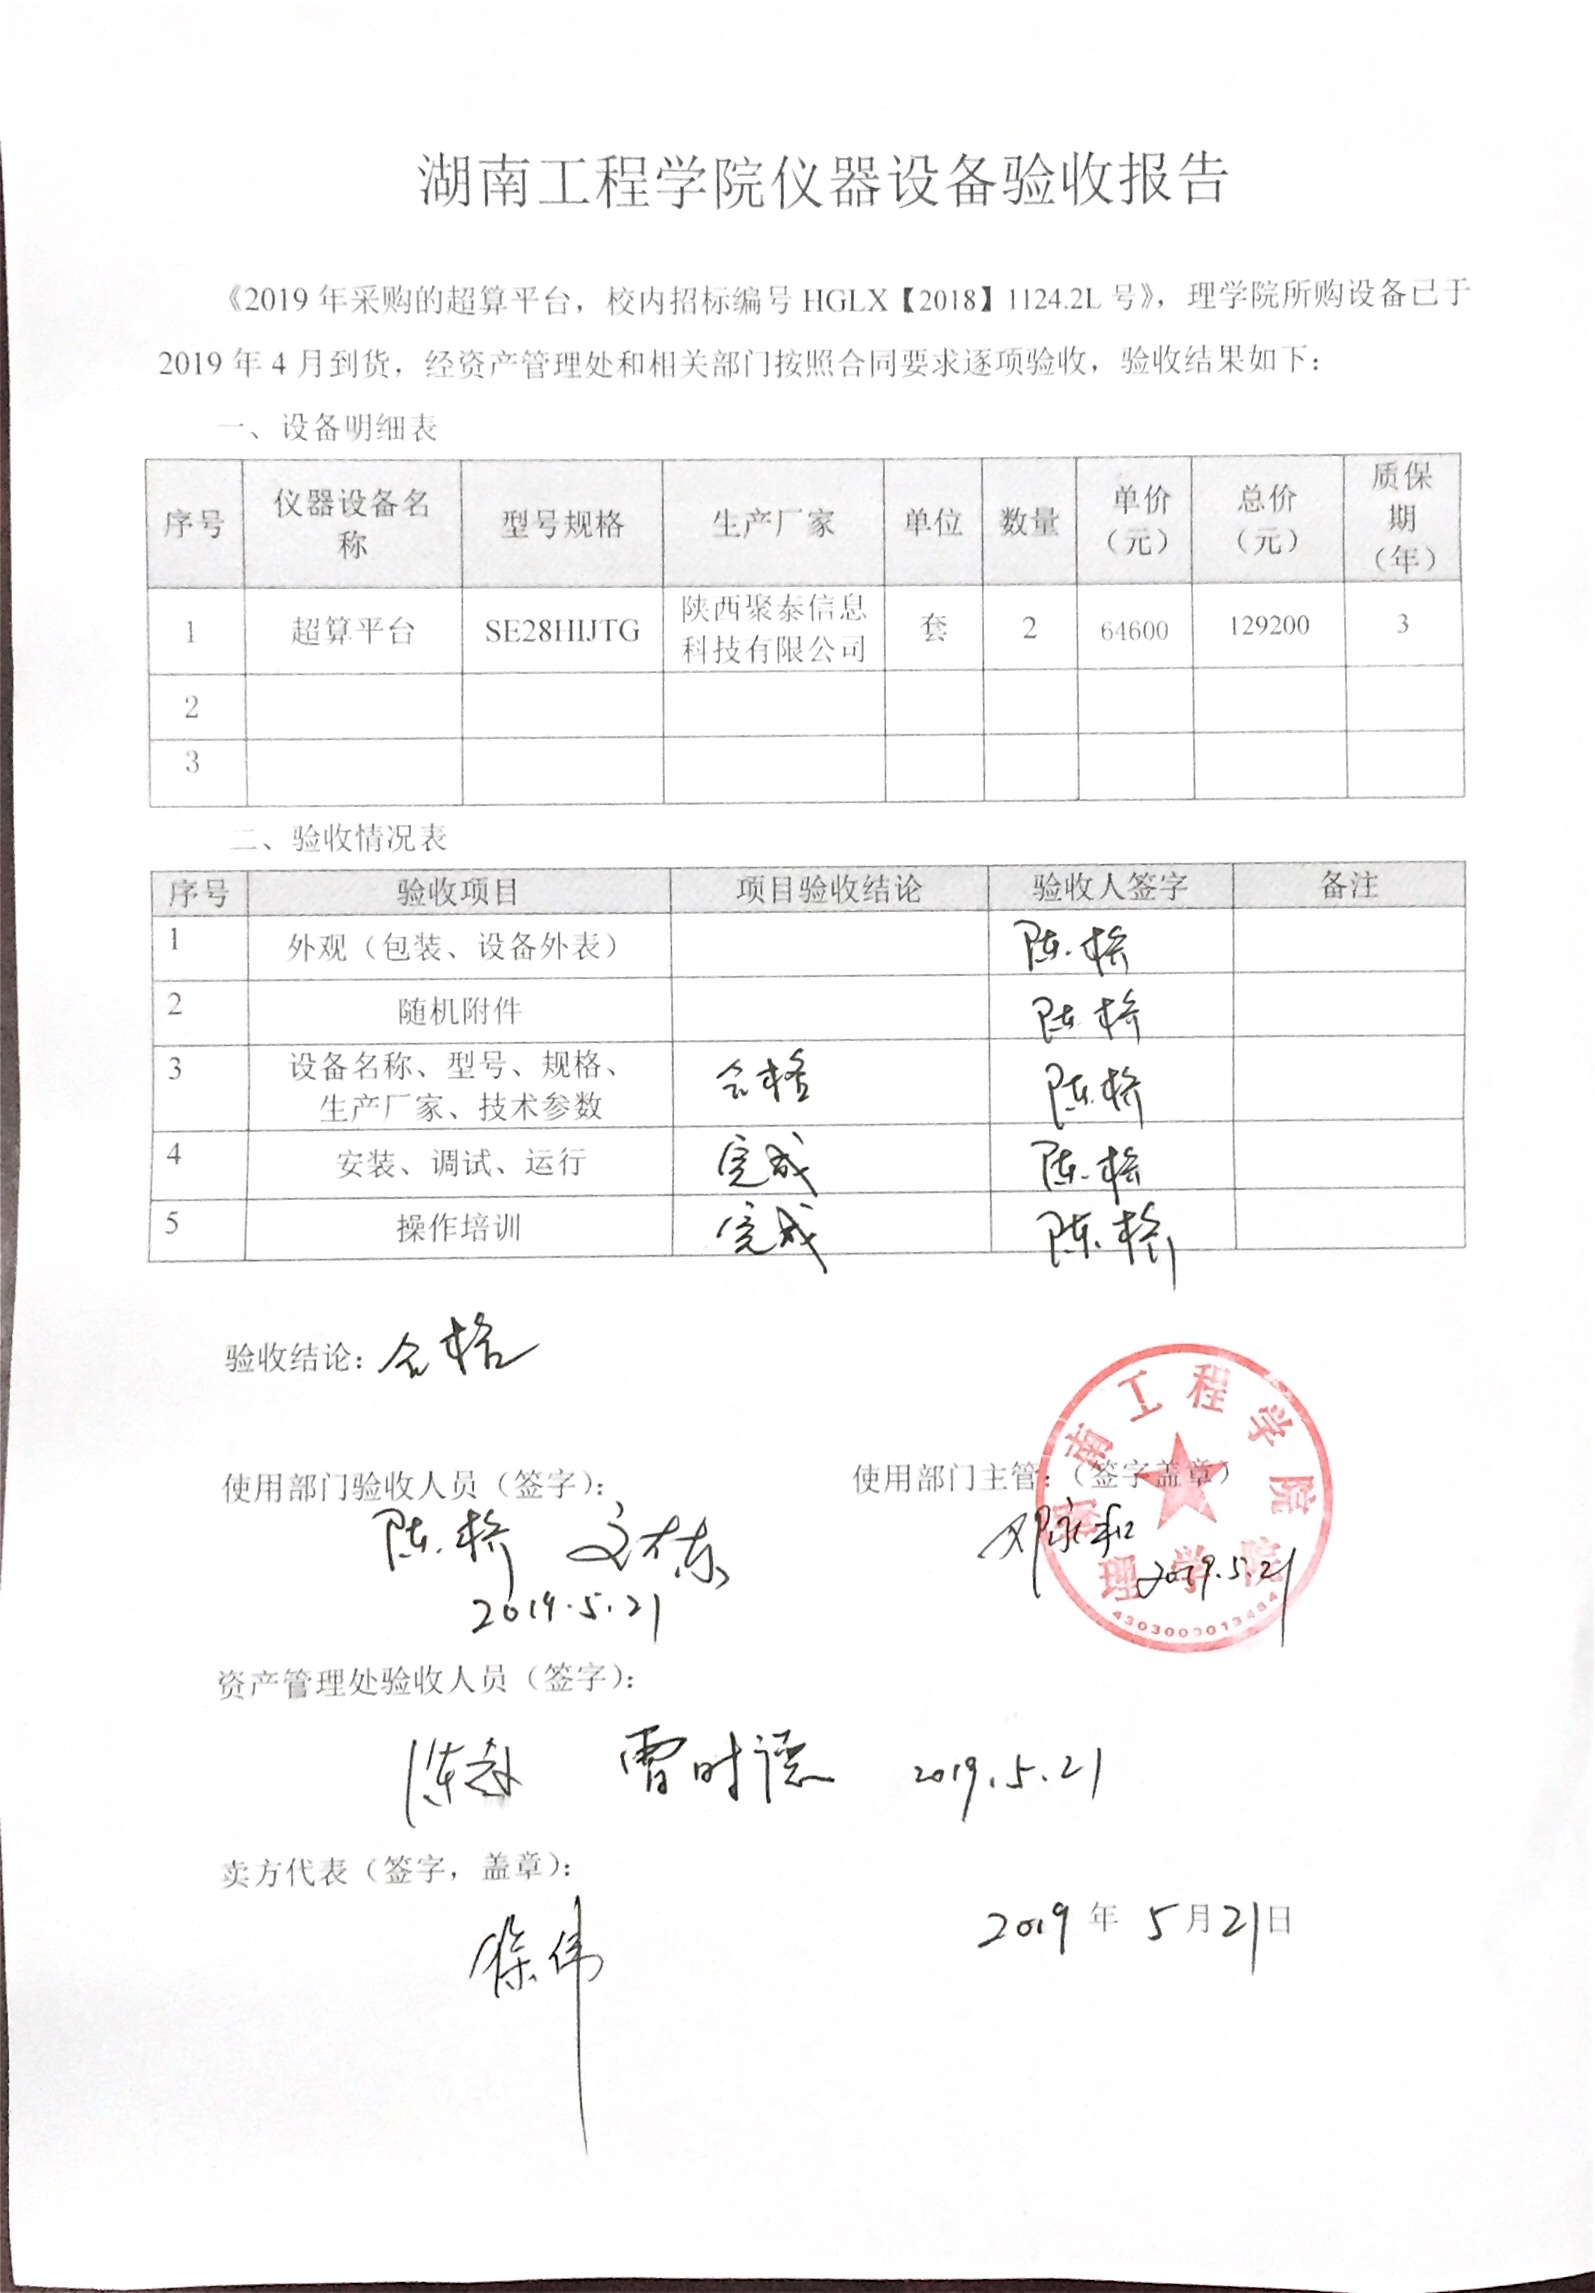 湖南工程学院仪器设备验收报告
《2019 年采购的超算平台，校内招标编号 HGLX【2018】1124.2L 号》，理学院所购设备已于
2019 年 4 月到货，经资产管理处和相关部门按照合同要求逐项验收，验收结果如下：
一、设备明细表
序号 仪器设备名称 型号规格 生产厂家 单位 数量 单价（元） 总价（元） 质保期（年）
1 超算平台 SE28HIJTG 陕西聚泰信息科技有限公司 套 2 64600 129200 3
2
3
二、验收情况表
序号 验收项目 项目验收结论 验收人签字 备注
1 外观（包装、设备外表） 陈
2 随机附件 陈
3 设备名称、型号、规格、生产厂家、技术参数 合格 陈
4 安装、调试、运行 完成 陈
5 操作培训 完成 陈
验收结论：合格
使用部门验收人员（签字）： 使用部门主管：（签字盖章）
陈 文 邓
2019.5.21 2019.5.21
湖南工程学院
理学院
资产管理处验收人员（签字）：
陈 2019.5.21
卖方代表（签字，盖章）：
徐伟
2019 年 5 月 21 日